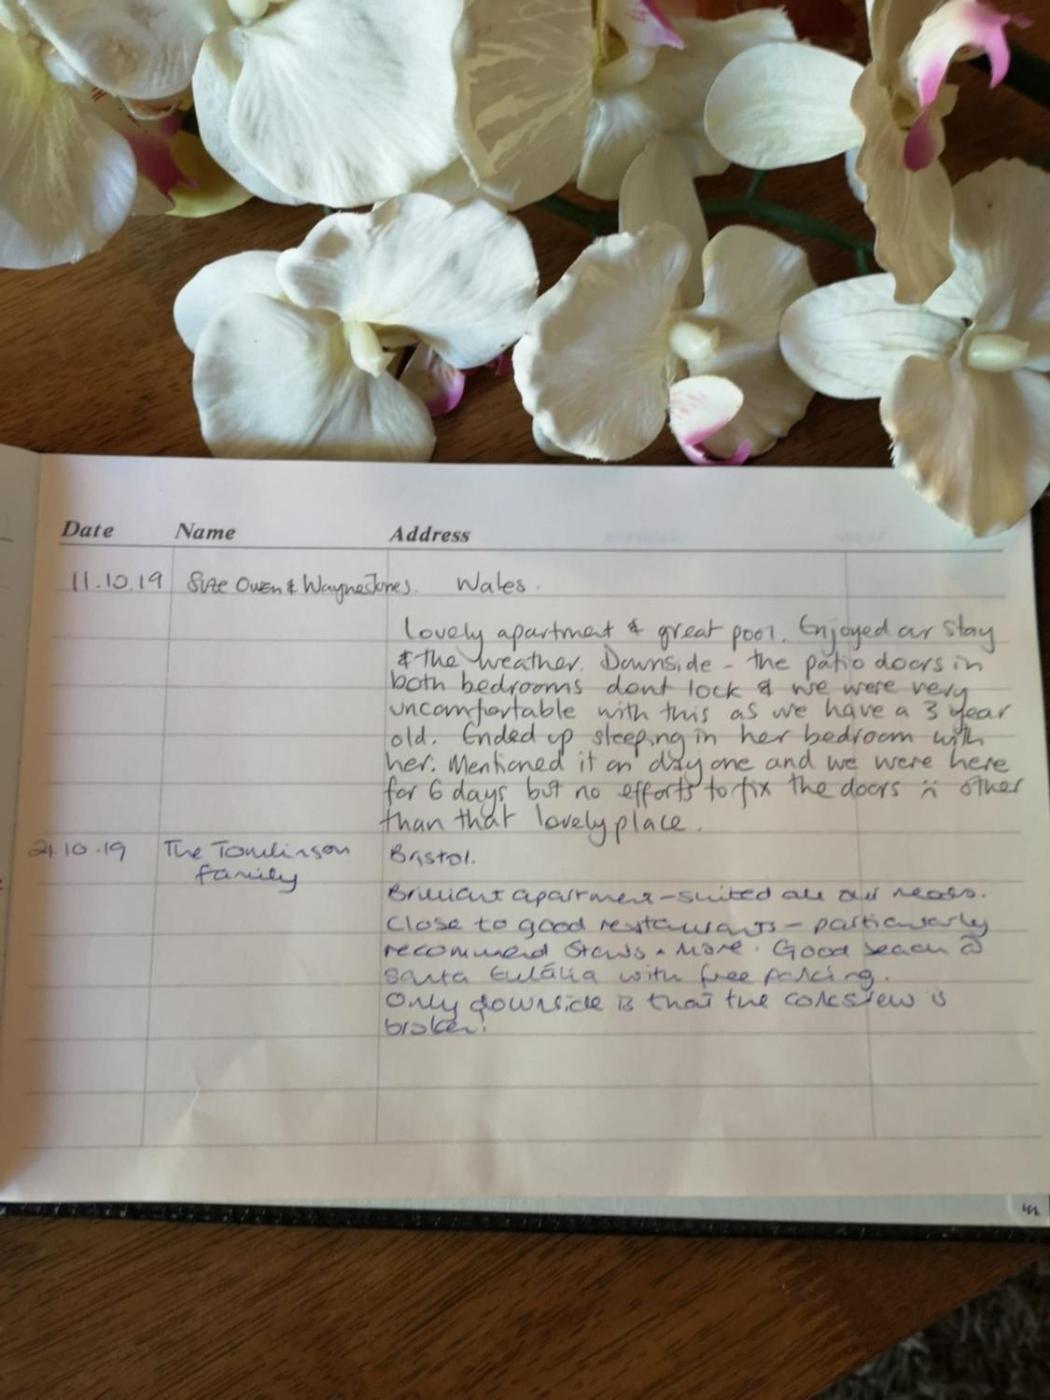 Date Name Address
11.10.19 Sue Owen & Wayne Jones. Wales.
Lovely apartment & great pool. Enjoyed our stay
& the weather. Downside - the patio doors in
both bedrooms dont lock & we were very
uncomfortable with this as we have a 3 year
old. Ended up sleeping in her bedroom with
her. Mentioned it on day one and we were here
for 6 days but no efforts to fix the doors :( other
than that lovely place.
21.10.19 The Tomlinson Bristol.
family
Brilliant apartment - suited all our needs.
Close to good restaurants - particularly
recommend Stews & More. Good beach @
Santa Eulália with free parking.
Only downside is that the corkscrew is
broken!